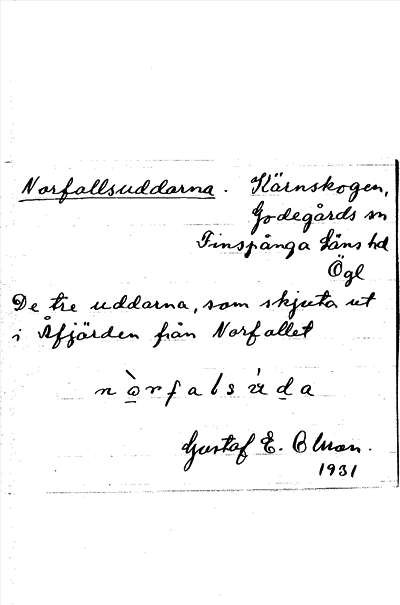 Norfallsuddarna. Kärnskogen,
Godegårds sn
Finspånga läns hd
Ögl
De tre uddarna, som skjuta ut
i Åfjärden från Norfallet
Gustaf E. Olsson.
1931